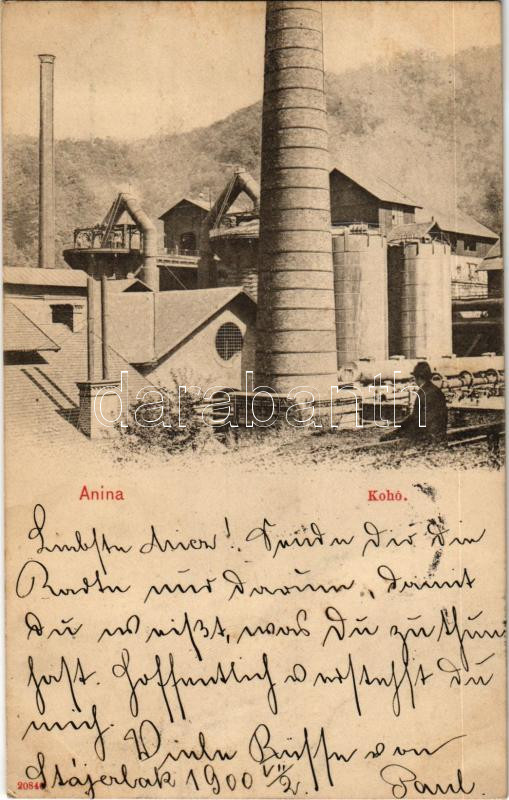 Anina
Kohó.
Liebste Micz! Sende Dir die
Karte nur darum, damit
du weißt, was Du zu thun
hast. Hoffentlich verstehst Du
mich.
Viele Küsse von
Stájerlak 1900 VII/2. Paul.
darabanth